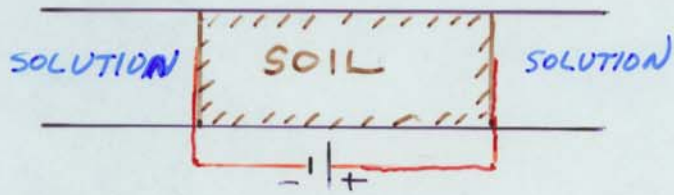 SOLUTION SOIL SOLUTION
- +